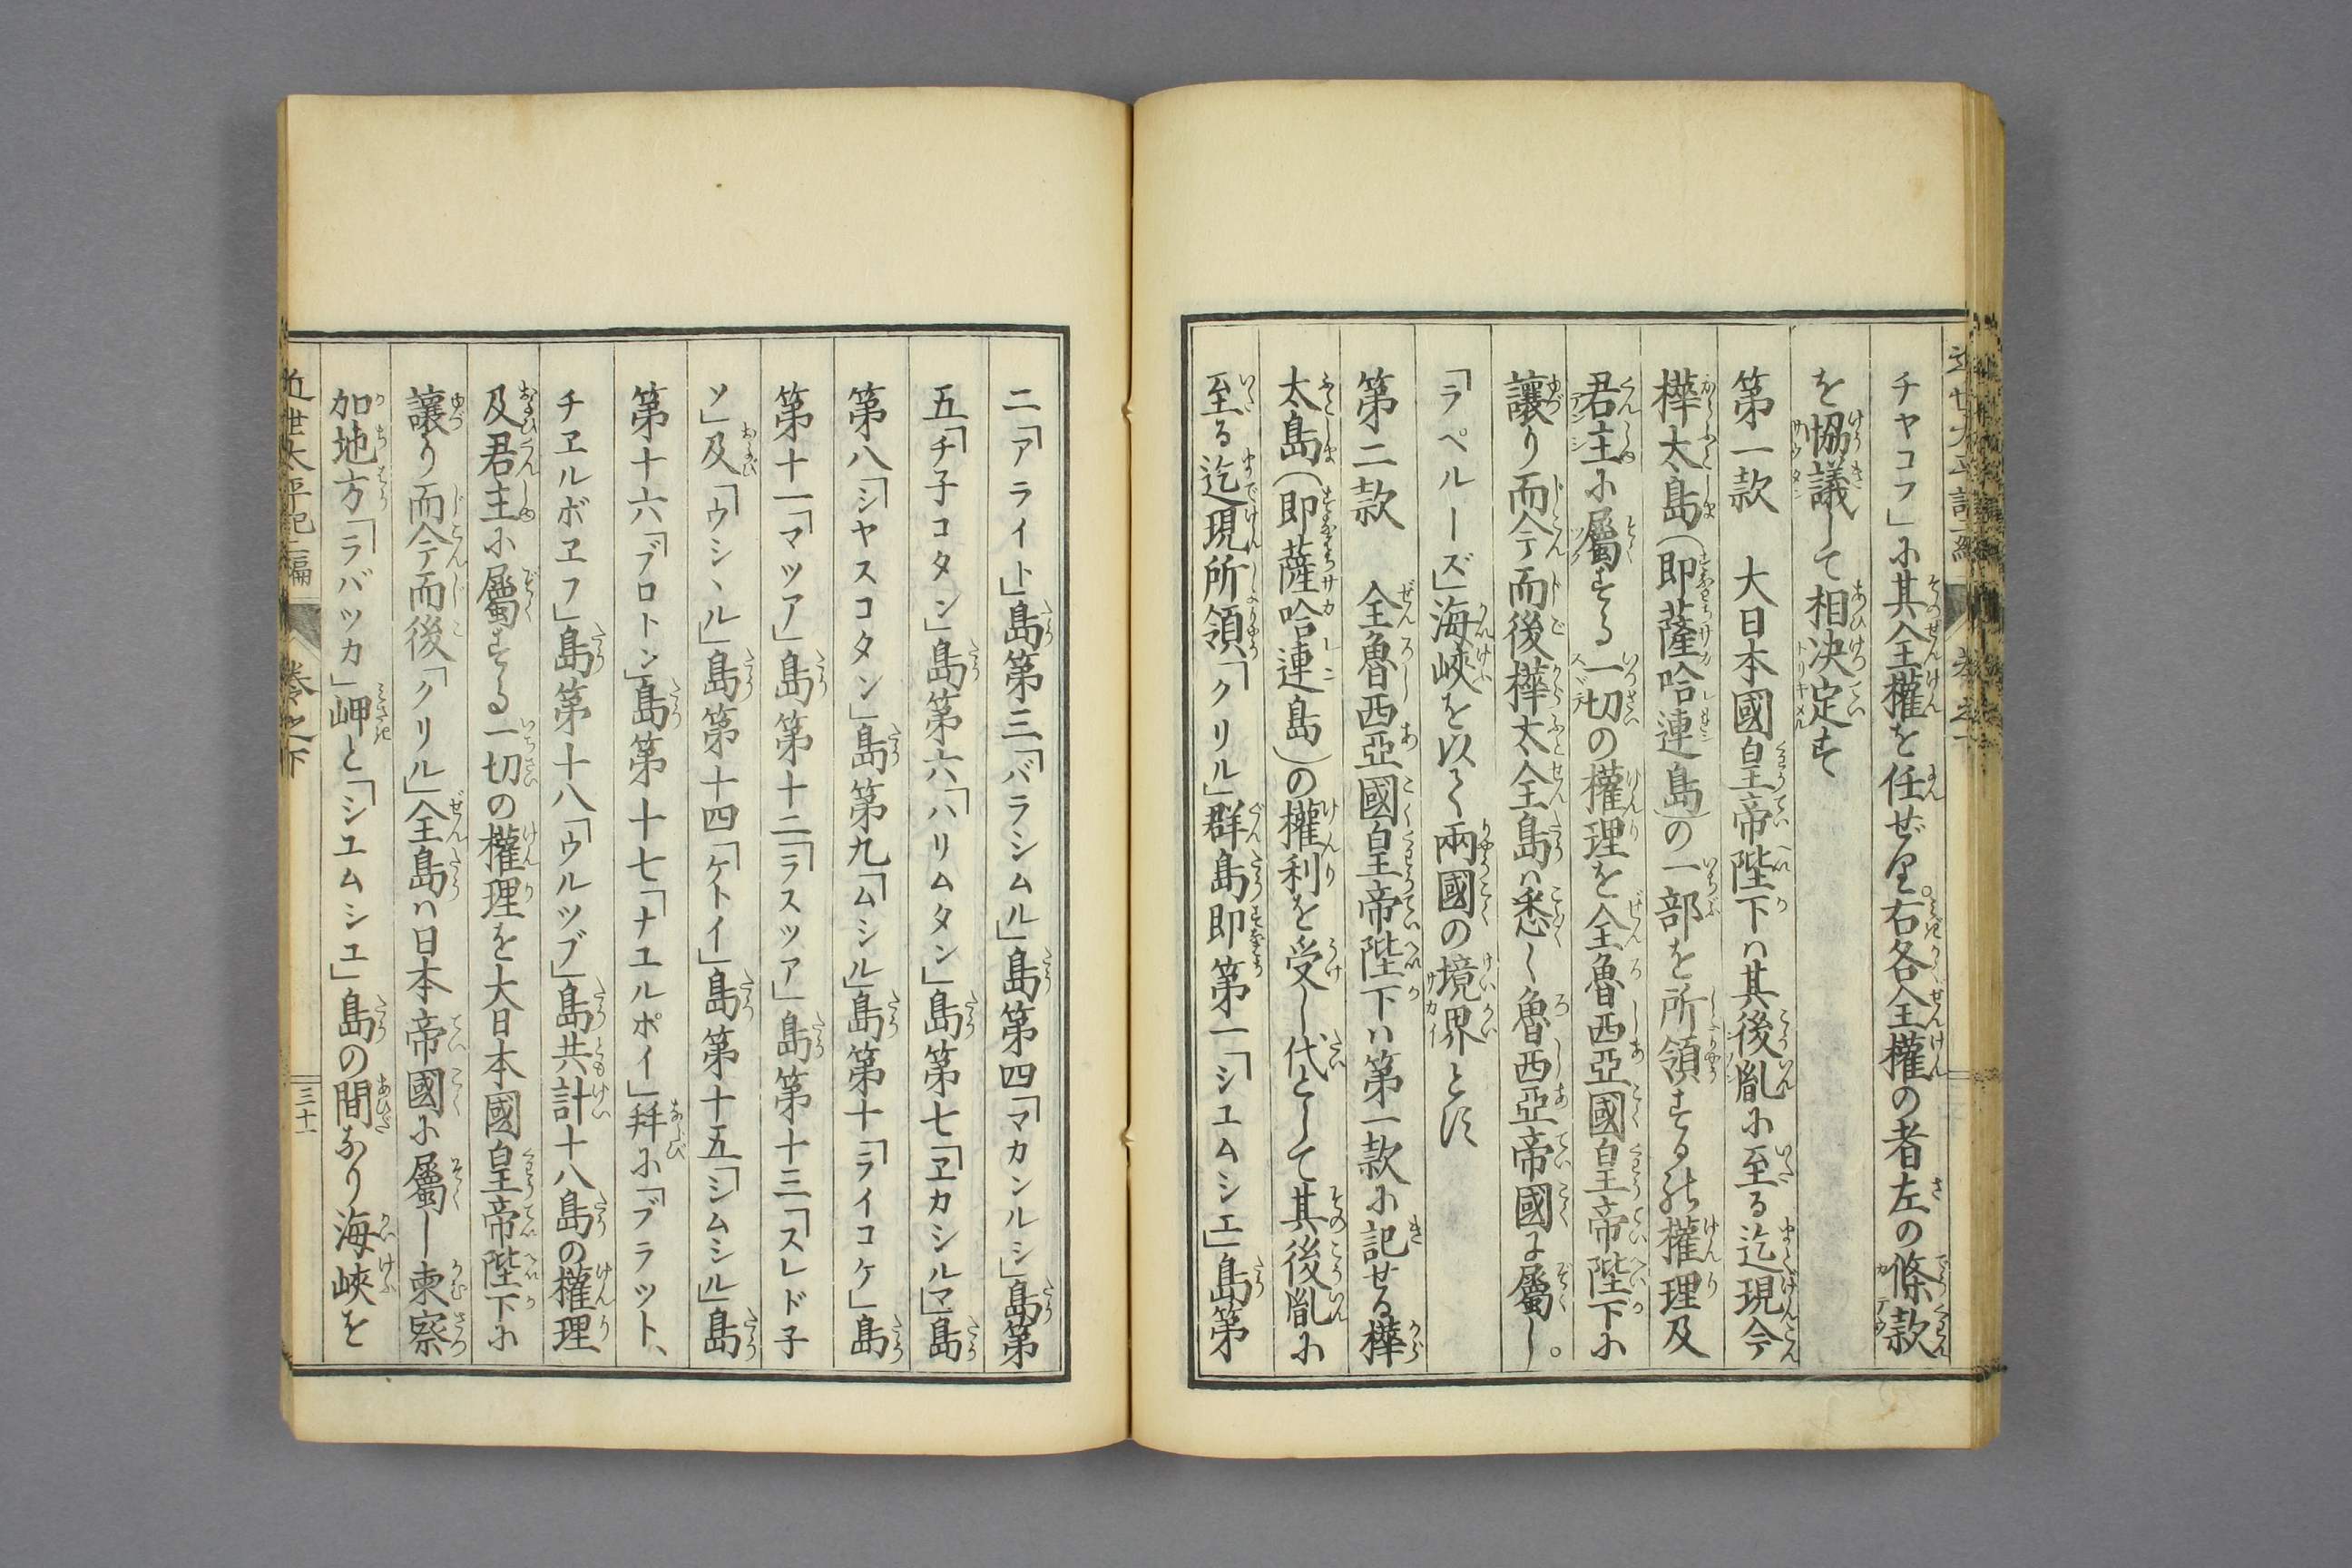 チヤコフ」に其全權を任ぜり。右各全權の者左の條款
を協議して相決定す
第一款　大日本國皇帝陛下ハ其後胤に至る迄現今
樺太島(即薩哈連島)の一部を所領する能權理及
君主に屬する一切の權理を全魯西亞國皇帝陛下に
讓り而今而後樺太全島ハ悉く魯西亞帝國に屬し。
「ラペルーズ」海峽を以て兩國の境界とす
第二款　全魯西亞國皇帝陛下ハ第一款に記せる樺
太島(即薩哈連島)の權利を受し代として其後胤に
至る迄現所領「クリル」群島即第一「シユムシエ」島第
二「アライト」島第三「バラシムル」島第四「マカンルシ」島第
五「チ子コタン」島第六「ハリムタン」島第七「ヱカシルマ」島
第八「シヤスコタン」島第九「ムシル」島第十「ライコケ」島
第十一「マツア」島第十二「ラスツア」島第十三「スレド子
ソ」及「ウシヽル」島第十四「ケトイ」島第十五「シムシル」島
第十六「ブロトン」島第十七「ナユルポイ」拜に「ブラツト、
チヱルボヱフ」島第十八「ウルツブ」島共計十八島の權理
及君主に屬する一切の權理を大日本國皇帝陛下に
讓り而今而後「クリル」全島ハ日本帝國に屬し柬察
加地方「ラバツカ」岬と「シユムシユ」島の間なり海峽を
近世太平記二編　卷之下　三十一